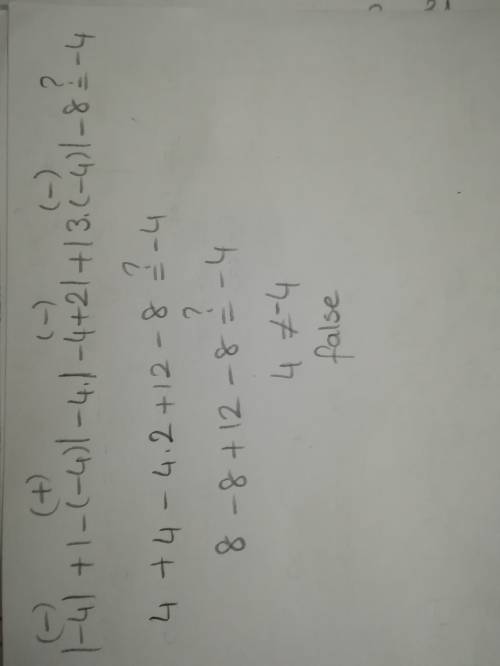 (-) (+) (-) (-)
|-4| + |-(-4)| - 4.|-4+2| + |3.(-4)| - 8 ≟ -4
4 + 4 - 4.2 + 12 - 8 ≟ -4
8 - 8 + 12 - 8 ≟ -4
4 ≠ -4
false